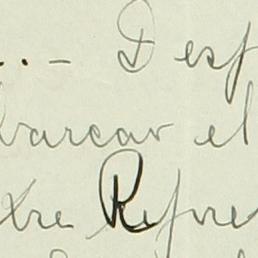 ...- Desp
barcar el
tre Refre